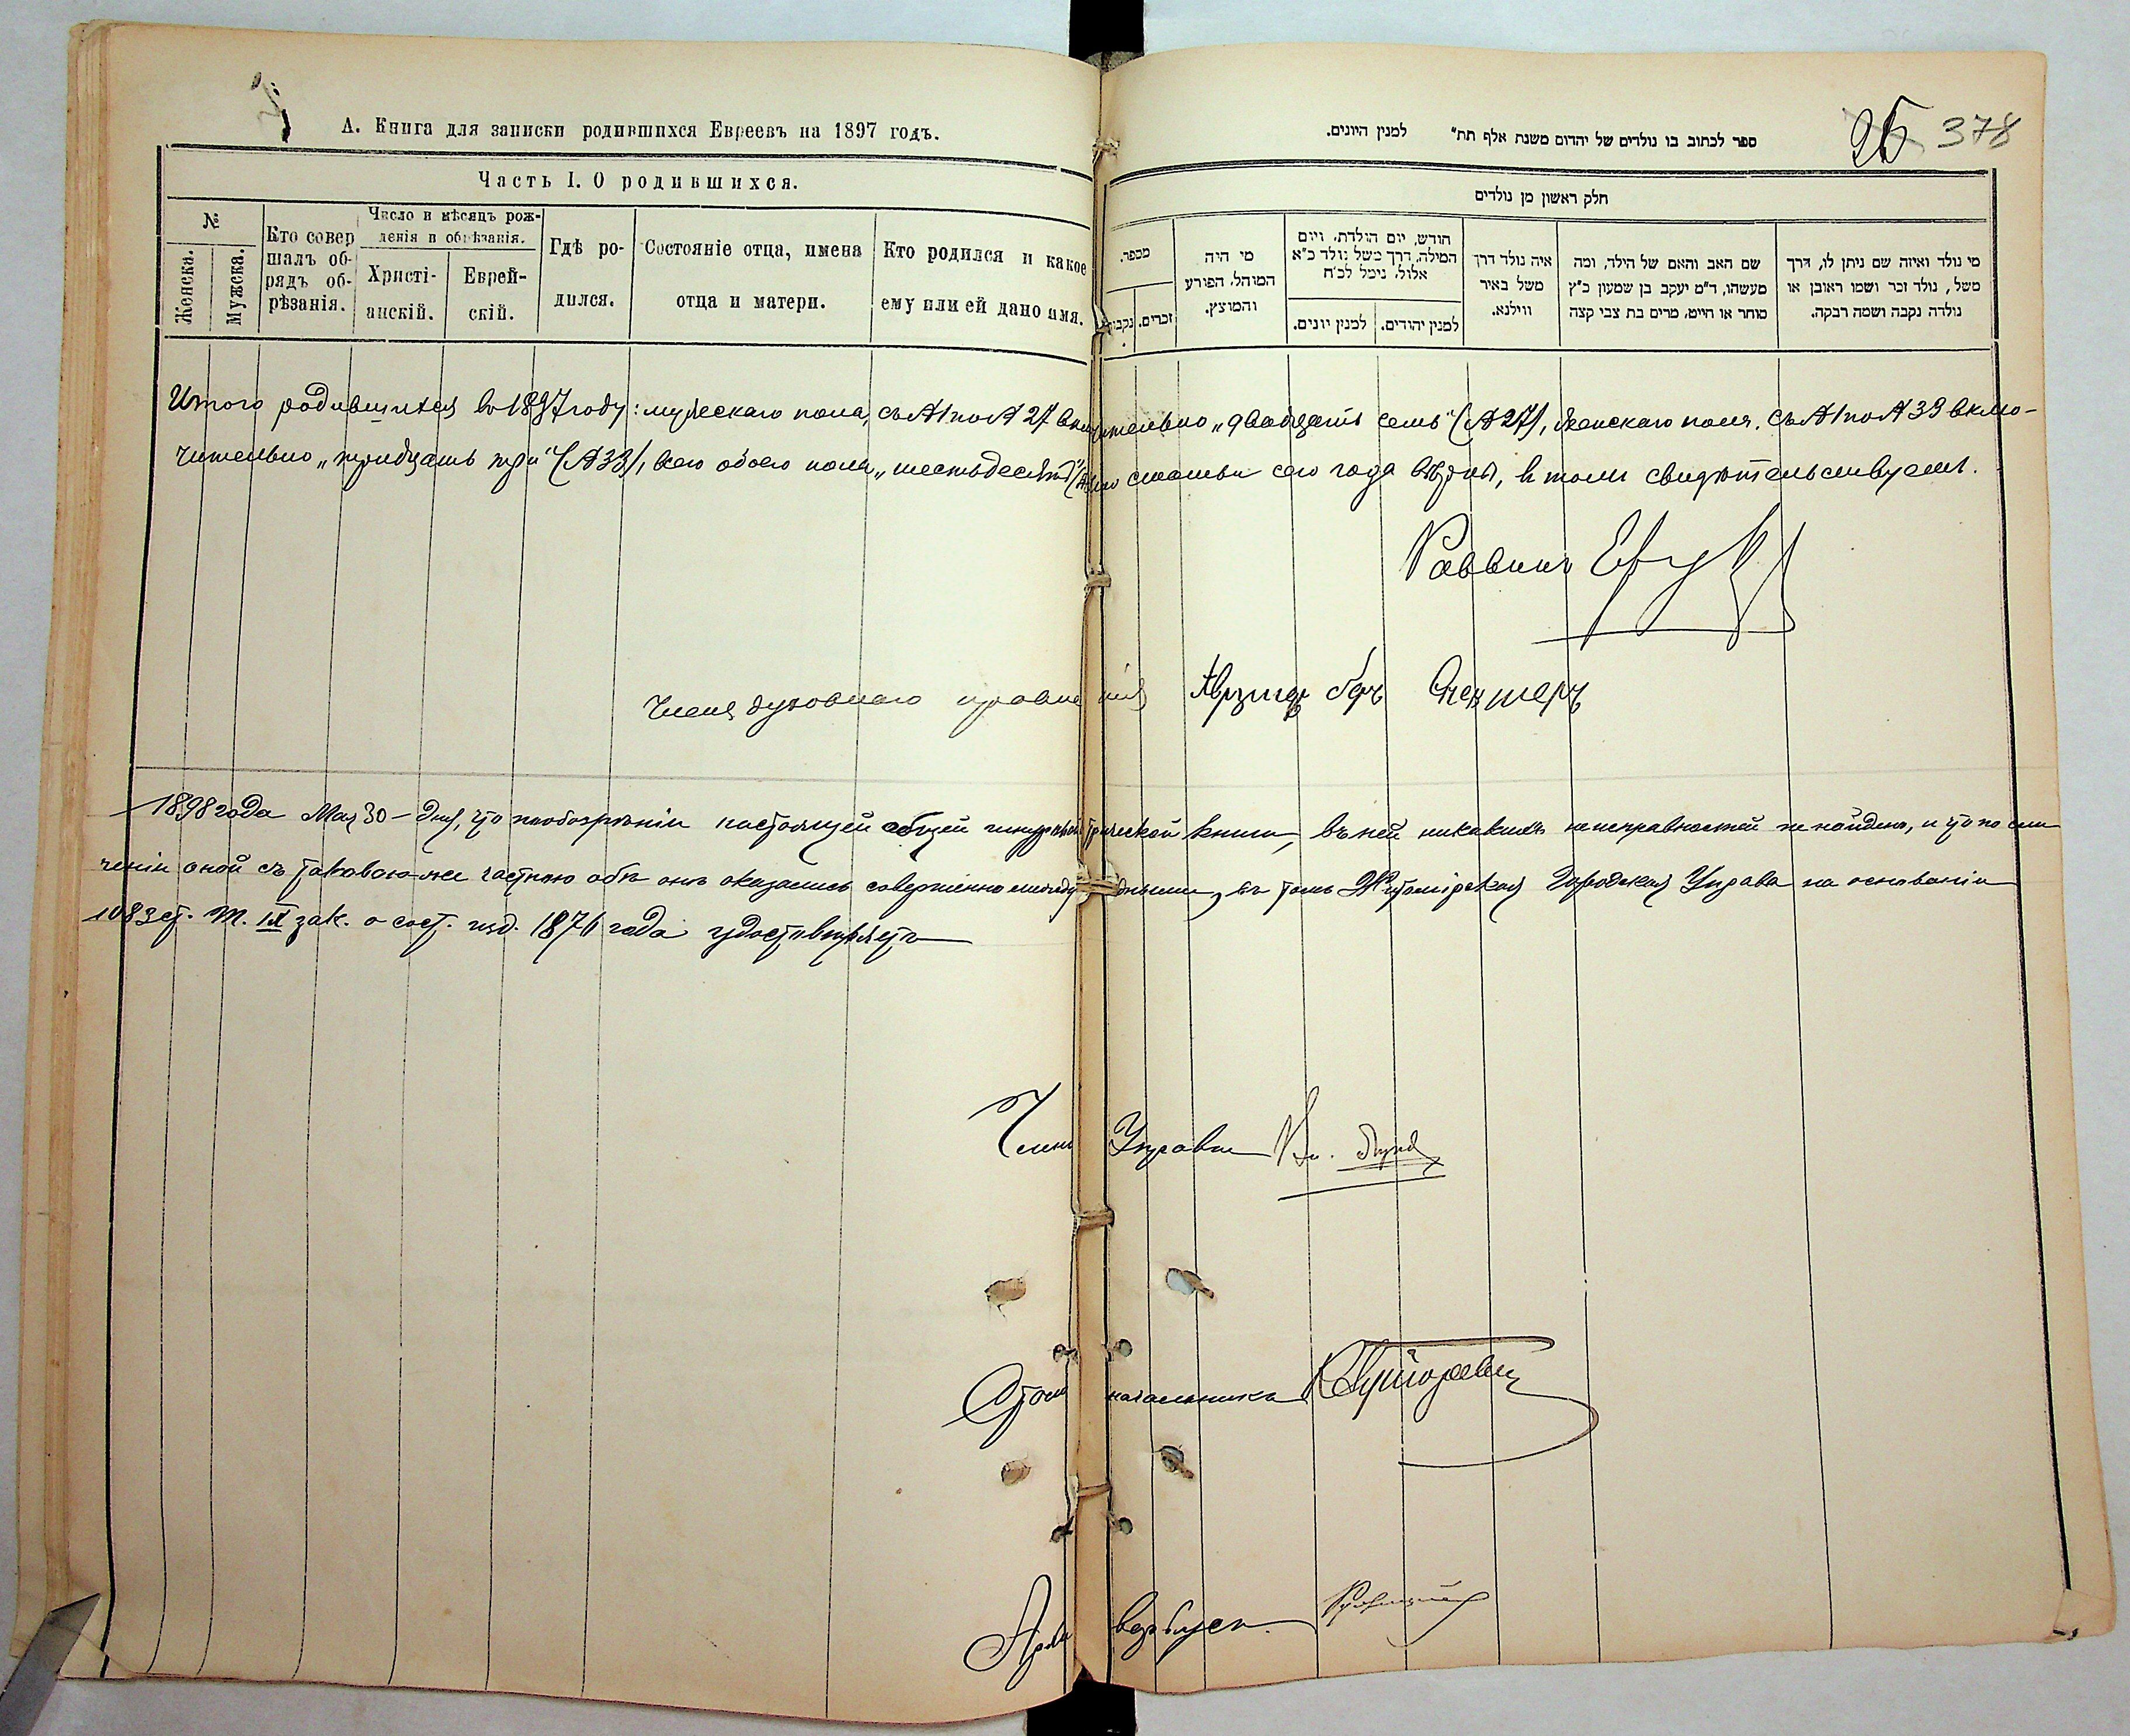 А. Книга для записки родившихся Евреевъ на 1897 годъ.
Часть I. О родившихся.
№
Женска.
Мужеска.
Кто совер
шалъ об-
рядъ об-
рѣзанія.
Число и мѣсяцъ рож-
денія и обрѣзанія.
Христі-
анскій.
Еврей-
скій.
Гдѣ ро-
дился.
Состояніе отца, имена
отца и матери.
Кто родился и какое
ему или ей дано имя.
ספר לכתוב בו נולדים של יהדום משנת אלף תת" למנין היונים.
378
חלק ראשון מן נולדים
מספר.
נקבות
זכרים.
מי היה
המוהל, הפורע
והמוצץ.
חודש, יום הולדת, ויום
המילה, דרך משל נולד כ"א
אלול, נימל לכ"ח
למנין יונים.
למנין יהודים.
איה נולד דרך
משל באיר
ווילנא.
שם האב והאם של הילד, ומה
מעשהו, ד"מ יעקב בן שמעון כ"ץ
סוחר או חייט, מרים בת צבי קצה
מי נולד ואיזה שם ניתן לו, דרך
משל, נולד זכר ושמו ראובן או
נולדה נקבה ושמה רבקה.
Итого родившихся въ 1897 году: мужескаго пола, съ №1 по №27 включительно „двадцать семь" (№27), женскаго пола, съ №1 по №33 вклю-
чительно „тридцать три" (№33), всего обоего пола „шестьдесятъ" статьи сего года вѣрны, в томъ свидѣтельствуемъ.
Раввинъ
Члены духовнаго правленія
1898 года Мая 30 дня, что по обозрѣніи настоящей общей шнуровой метрической книги, въ ней никакихъ неисправностей не найдено, и что по сли-
ченіи оной съ таковою-же частною обѣ онѣ оказались совершенно сходными, въ томъ Житомірская Городская Управа на основаніи
1083 ст. Т. IX зак. о сост. изд. 1876 года удостовѣряетъ
Членъ Управы
Столоначальникъ
Архиваріусъ